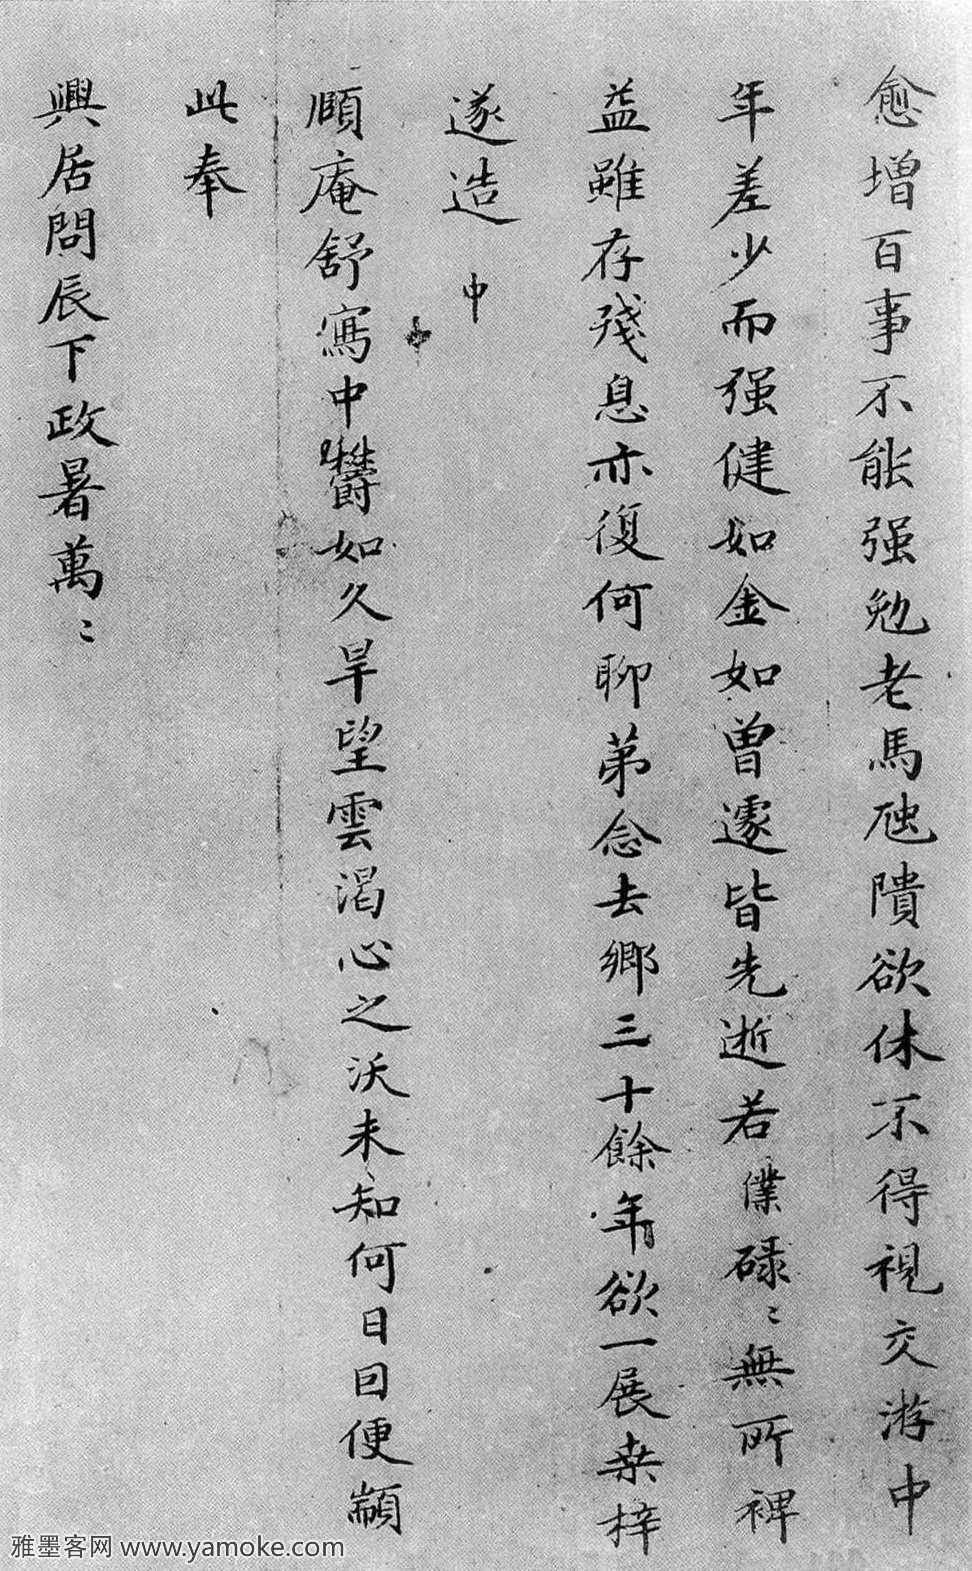 愈增百事不能强勉老馬虺隤欲休不得視交游中
年差少而强健如金如曾遽皆先逝若僕碌〻無所裨
益雖存殘息亦復何聊第念去鄉三十餘年欲一展桒梓
遂造中
頤庵舒寫中欝如久旱望雲渴心之沃未知何日因便顓
此奉
興居問辰下政暑萬〻
雅墨客网 www.yamoke.com